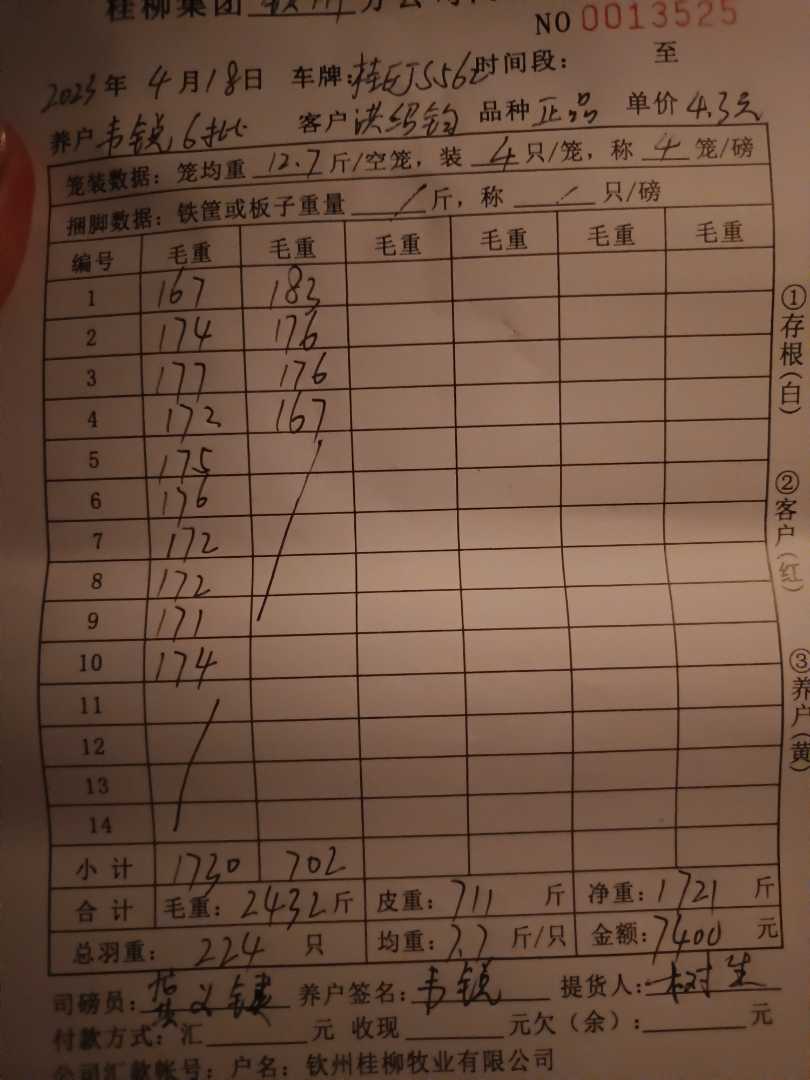 桂柳集团 钦州 分公司
NO 0013525
2023年 4月18日 车牌:桂EJS562 时间段: 至
养户 韦锐6批 客户 洪绍钧 品种 正品 单价 4.3元
笼装数据: 笼均重 12.7 斤/空笼, 装 4 只/笼, 称 4 笼/磅
捆脚数据: 铁筐或板子重量 / 斤, 称 / 只/磅
编号 毛重 毛重 毛重 毛重 毛重 毛重
1 167 183
2 174 176
3 177 176
4 172 167
5 175
6 176
7 172
8 172
9 171
10 174
11
12
13
14
小计 1730 702
合计 毛重: 2432斤 皮重: 711 斤 净重: 1721 斤
总羽重: 224 只 均重: 7.7 斤/只 金额: 7400 元
司磅员: 养户签名: 韦锐 提货人:
付款方式: 汇 元 收现 元欠(余): 元
公司汇款帐号: 户名: 钦州桂柳牧业有限公司
①存根(白)
②客户(红)
③养户(黄)